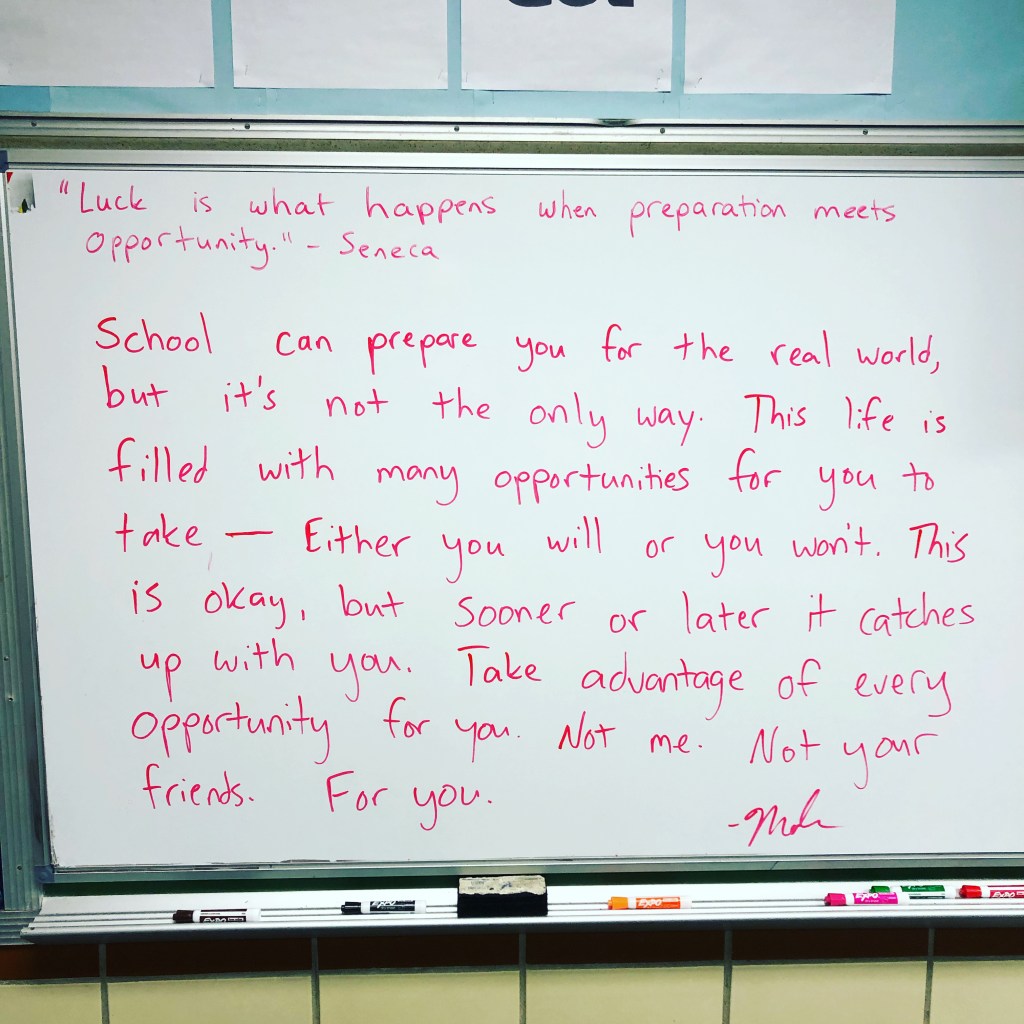 "Luck is what happens when preparation meets
opportunity." - Seneca
School can prepare you for the real world,
but it's not the only way. This life is
filled with many opportunities for you to
take — Either you will or you won't. This
is okay, but sooner or later it catches
up with you. Take advantage of every
opportunity for you. Not me. Not your
friends. For you.
EXPO
EXPO
EXPO